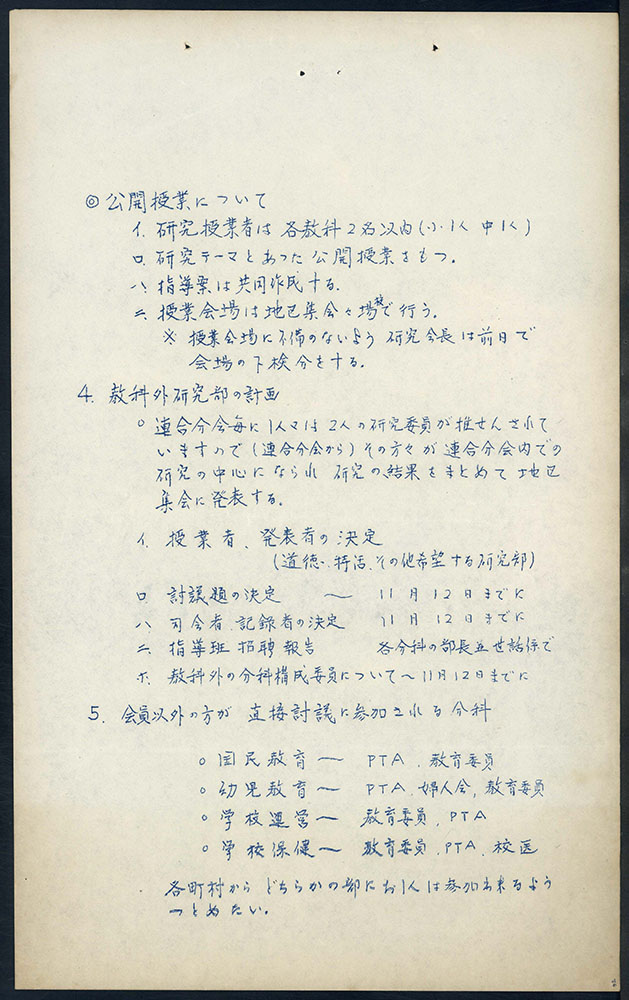 ◎ 公開授業について
イ. 研究授業者は 各教科2名以内(小・1人 中1人)
ロ. 研究テーマとあった公開授業をもつ。
ハ. 指導案は共同作成する.
ニ. 授業会場は地区集会々場校で行う。
※ 授業会場に不備のないよう 研究会長は前日で
会場の下検分をする.
4. 教科外研究部の計画
○ 連合分会毎に1人又は2人の研究委員が推せんされて
いますので(連合分会から)その方々が連合分会内での
研究の中心になられ 研究の結果をまとめて地区
集会に発表する.
イ. 授業者、発表者の決定
(道徳、特活、その他希望する研究部)
ロ 討議題の決定 〜 11月12日までに
ハ 司会者、記録者の決定 11月12日までに
ニ. 指導班 招聘 報告 各分科の部長並世話係で
ホ. 教科外の分科構成委員について〜11月12日までに
5. 会員以外の方が 直接討議に参加される分科
○ 国民教育 〜 PTA、教育委員
○ 幼児教育 〜 PTA、婦人会、教育委員
○ 学校運営 〜 教育委員、PTA
○ 学校保健 〜 教育委員、PTA、校医
各町村から どちらかの部にお1人は参加出来るよう
つとめたい.